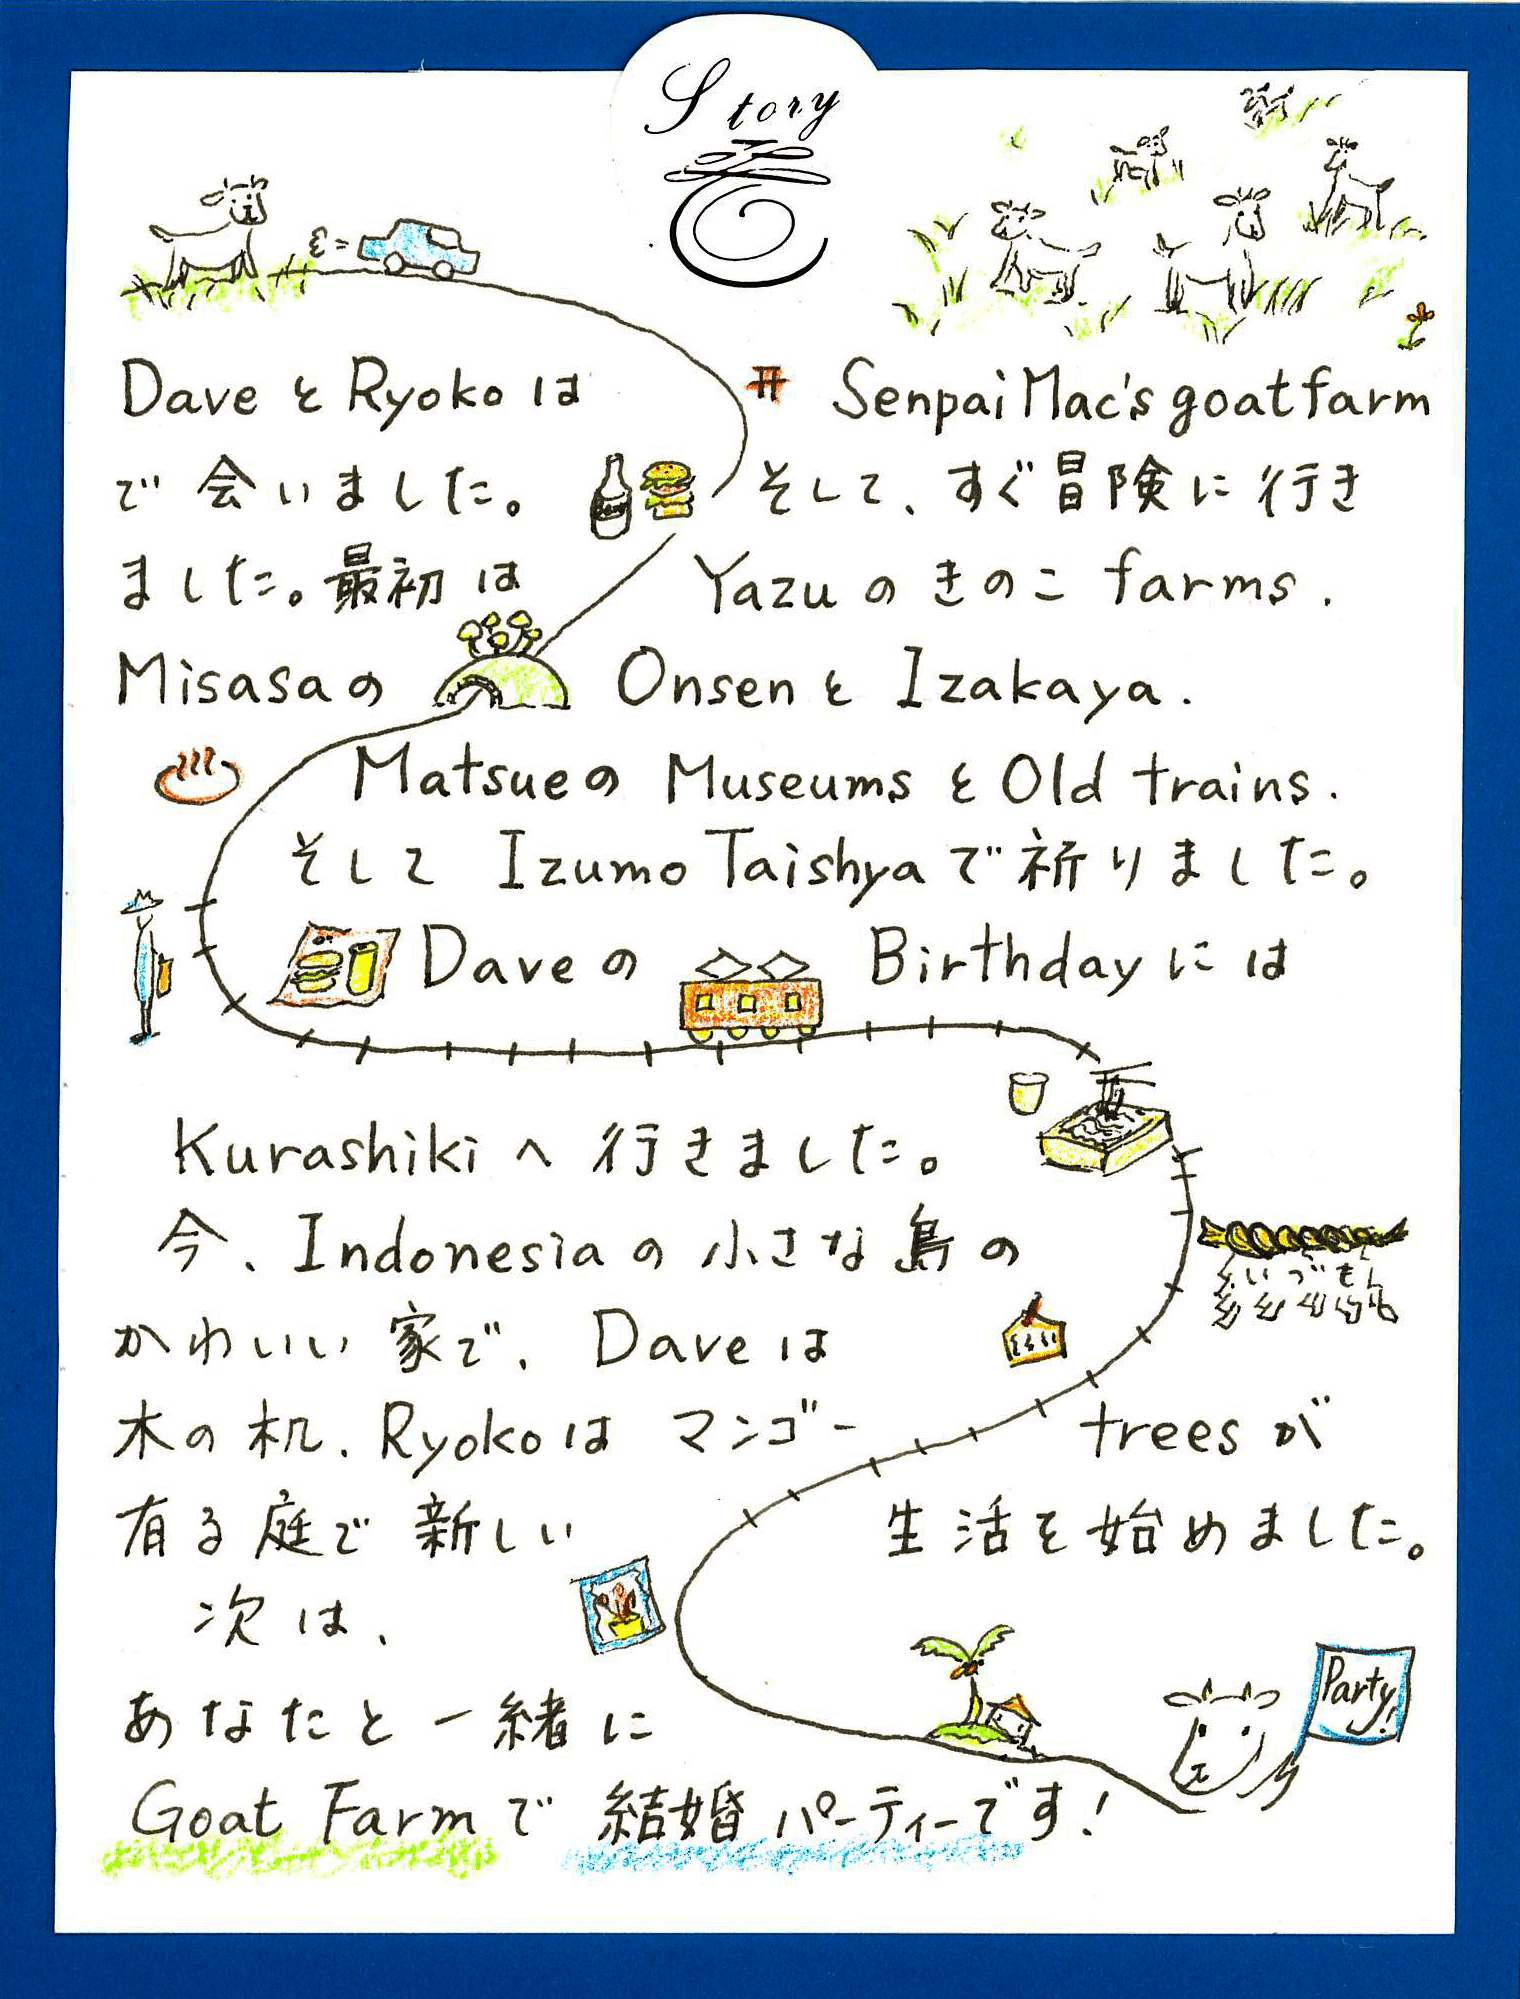 Story
Dave と Ryoko は Senpai Mac's goat farm
で会いました。 そして、すぐ冒険に行き
ました。最初は Yazu の きのこ farms.
Misasa の Onsen と Izakaya.
Matsue の Museums と Old trains.
そして Izumo Taishya で祈りました。
Dave の Birthday には
Kurashiki へ 行きました。
今、Indonesia の 小さな島の
いづも
かわいい 家で、Dave は
木の机、Ryoko は マンゴー trees が
有る庭で 新しい 生活を始めました。
次は、
Party!
あなたと一緒に
Goat Farm で 結婚パーティーです!